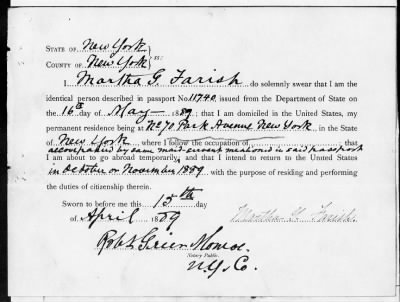 STATE OF New York
COUNTY OF New York } ss:
I Martha G. Farish do solemnly swear that I am the
identical person described in passport No. 11740 issued from the Department of State on
the 16th day of May 1889; that I am domiciled in the United States, my
permanent residence being at No 70 Park Avenue New York in the State
of New York where I follow the occupation of ; that
accompanied by same in said passport
I am about to go abroad temporarily, and that I intend to return to the United States
in October or November 1889 with the purpose of residing and performing
the duties of citizenship therein.
Sworn to before me this 15th day
of April 1889
Martha G. Farish
Robt Grier Monroe
Notary Public.
N.Y. Co.